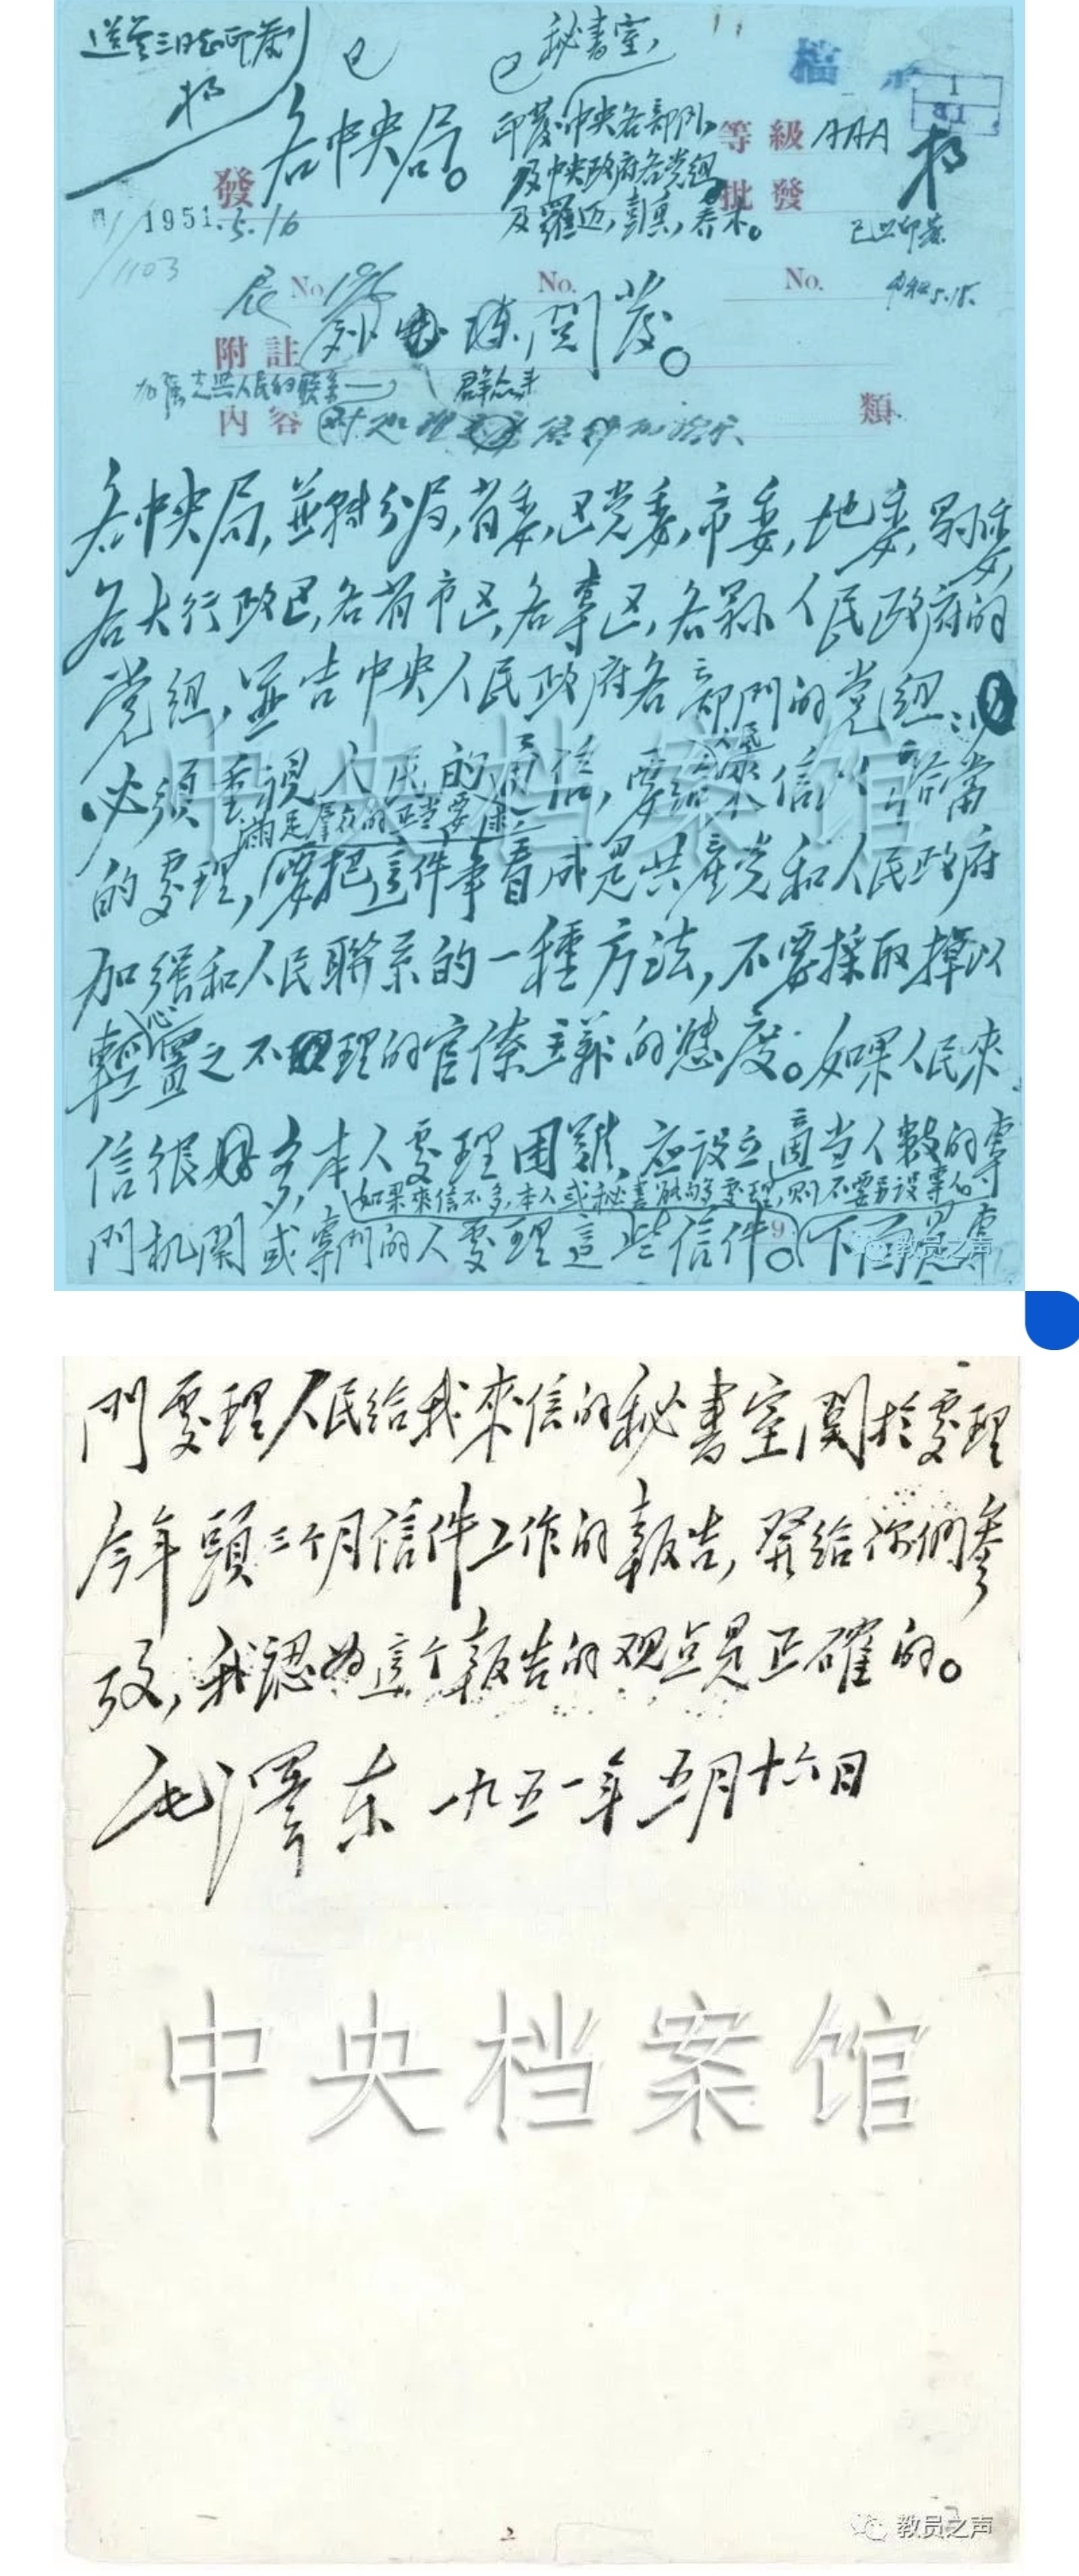 秘書室,
檔
各中央局。
印發中央各部門,
及中央政府各党組
等級 AAA
發
批發
1951.5.16
1103
No.
No.
No.
附註
閱發。
加強党與人民的联系
群众来
內容
類
各中央局,並轉分局,省委,区党委,市委,地委,縣委,
各大行政区,各省市区,各專区,各縣人民政府的
党組,並告中央人民政府各部門的党組:
必須重視人民的通信,要給人民來信以恰當
滿足羣众的正当要求
的處理,要把這件事看成是共產党和人民政府
加強和人民聯系的一種方法,不要採取掉以
輕心置之不理的官僚主義的態度。如果人民來
信很多,本人處理困難,应設立適当人数的專
如果來信不多,本人或秘書能夠處理,則不要另設專人
門机関或專門的人處理這些信件。下面是專
教员之声
門處理人民給我來信的秘書室関於處理
今年頭三个月信件工作的報告,發給你們參
攷,我認為這个報告的观点是正確的。
毛澤东 一九五一年五月十六日
中央档案馆
2
教员之声